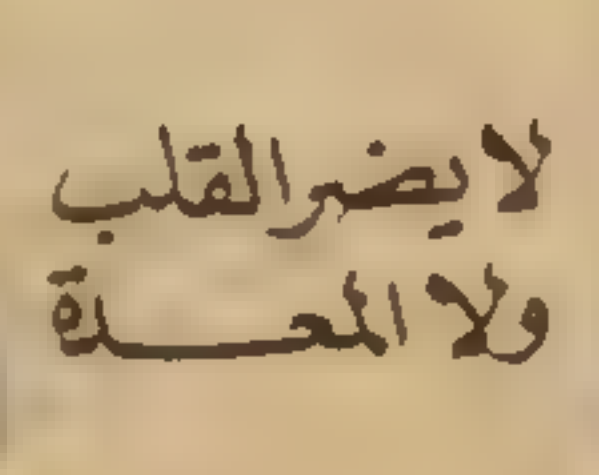 لا يضر القلب
ولا المعدة